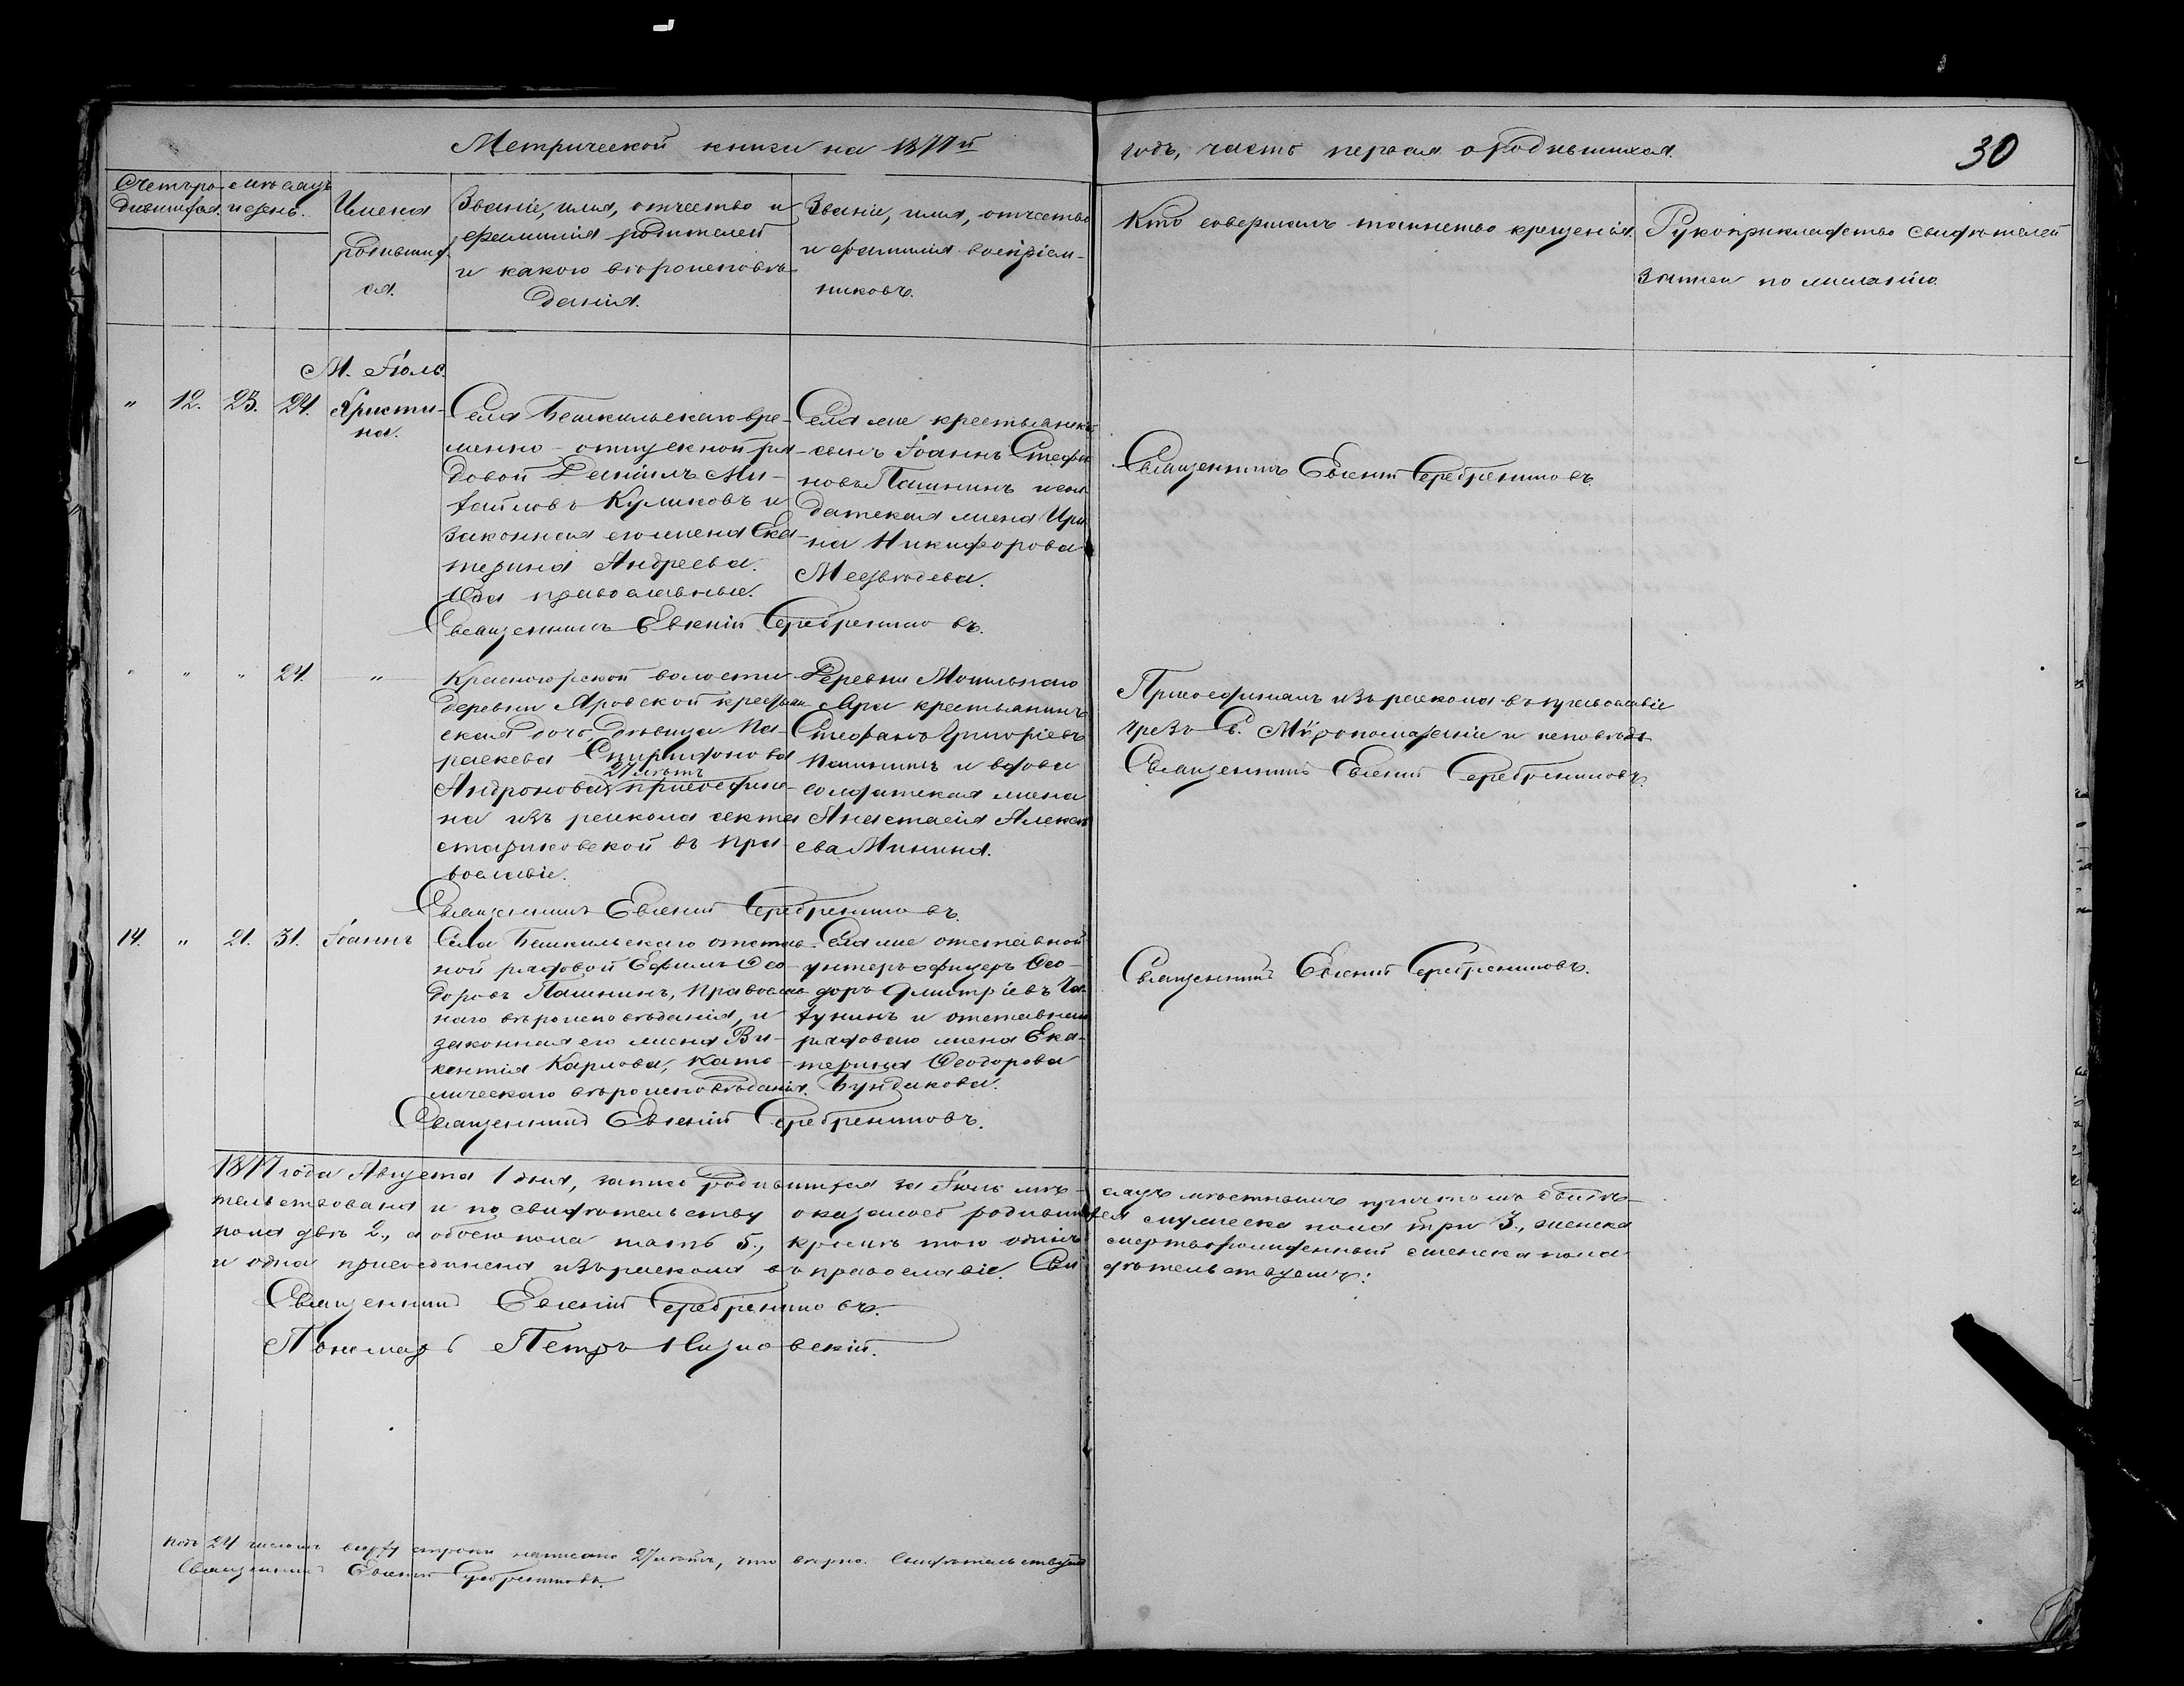 Метрической книги на 1877й годъ, часть первая о родившихся.
30
Счетъ ро- дившихся.
Мѣсяцъ и день.
Имена
родивших-
ся.
Званіе, имя, отчество и
фамилія родителей
и какого вѣроисповѣ-
данія.
Званіе, имя, отчество
и фамилія воспріем-
никовъ.
Кто совершалъ таинство крещенія.
Рукоприкладство свидѣтелей
записи по желанію.
М. Іюль.
" 12. 23. 24. Христи-
на.
Села Бешкильскаго вре-
менно-отпускной ря-
довой Даніилъ Ми-
хайловъ Куликовъ и
законная его жена Ека-
терина Андреева.
Оба православные.
Села же крестьянск
сынъ Іоаннъ Стефа
новъ Пашнинъ и сол
датская жена Ири
на Никифорова
Медвѣдева.
Священникъ Евгеній Серебрениковъ.
Священникъ Евгеній Серебрениковъ.
" " " 24. "
Красногорской волости
деревни Яровской крестьян
ская дочь, дѣвица Па-
раскева Спиридонова
27 лѣтъ
Андронова присоедине-
на изъ раскола секты
стариковской въ пра-
вославіе.
Деревни Мостоваго
Яра крестьянинъ
Стефанъ Григорьевъ
Пашнинъ и вдова
солдатская жена
Анастасія Алексѣ
ева Минина.
Священникъ Евгеній Серебрениковъ.
Присоединялъ изъ раскола въ православіе
чрезъ Св. Мѵропомазаніе и исповѣдь
Священникъ Евгеній Серебрениковъ.
14. " 21. 31. Іоаннъ
Села Бешкильскаго отстав-
ной рядовой Ефимъ Ѳео-
доровъ Пашнинъ, православ
наго вѣроисповѣданія, и
законная его жена Ви-
кентія Карлова, като-
лическаго вѣроисповѣданія.
Села же отставной
унтеръ офицеръ Ѳео-
доръ Димитріевъ
и отставнаго
рядоваго жена Ека-
терина Ѳеодорова
Бундакова.
Священникъ Евгеній Серебрениковъ.
Священникъ Евгеній Серебрениковъ.
1877 года Августа 1 дня, запись родившихся за Іюль мѣ- сяцъ мѣстнымъ причтомъ свидѣ-
тельствована и по свидѣтельству оказалось родившихся мужеска пола три 3., женска
пола двѣ 2., а обоего пола пять 5., кромѣ того одинъ мертворожденный женска пола
и одна присоединена изъ раскола въ православіе. Сви дѣтельствуемъ:
Священникъ Евгеній Серебрениковъ.
Пономарь Петръ
Подъ 24 числомъ вверху строки написано 27 лѣтъ, что вѣрно. Свидѣтельствуетъ
Священникъ Евгеній Серебрениковъ.